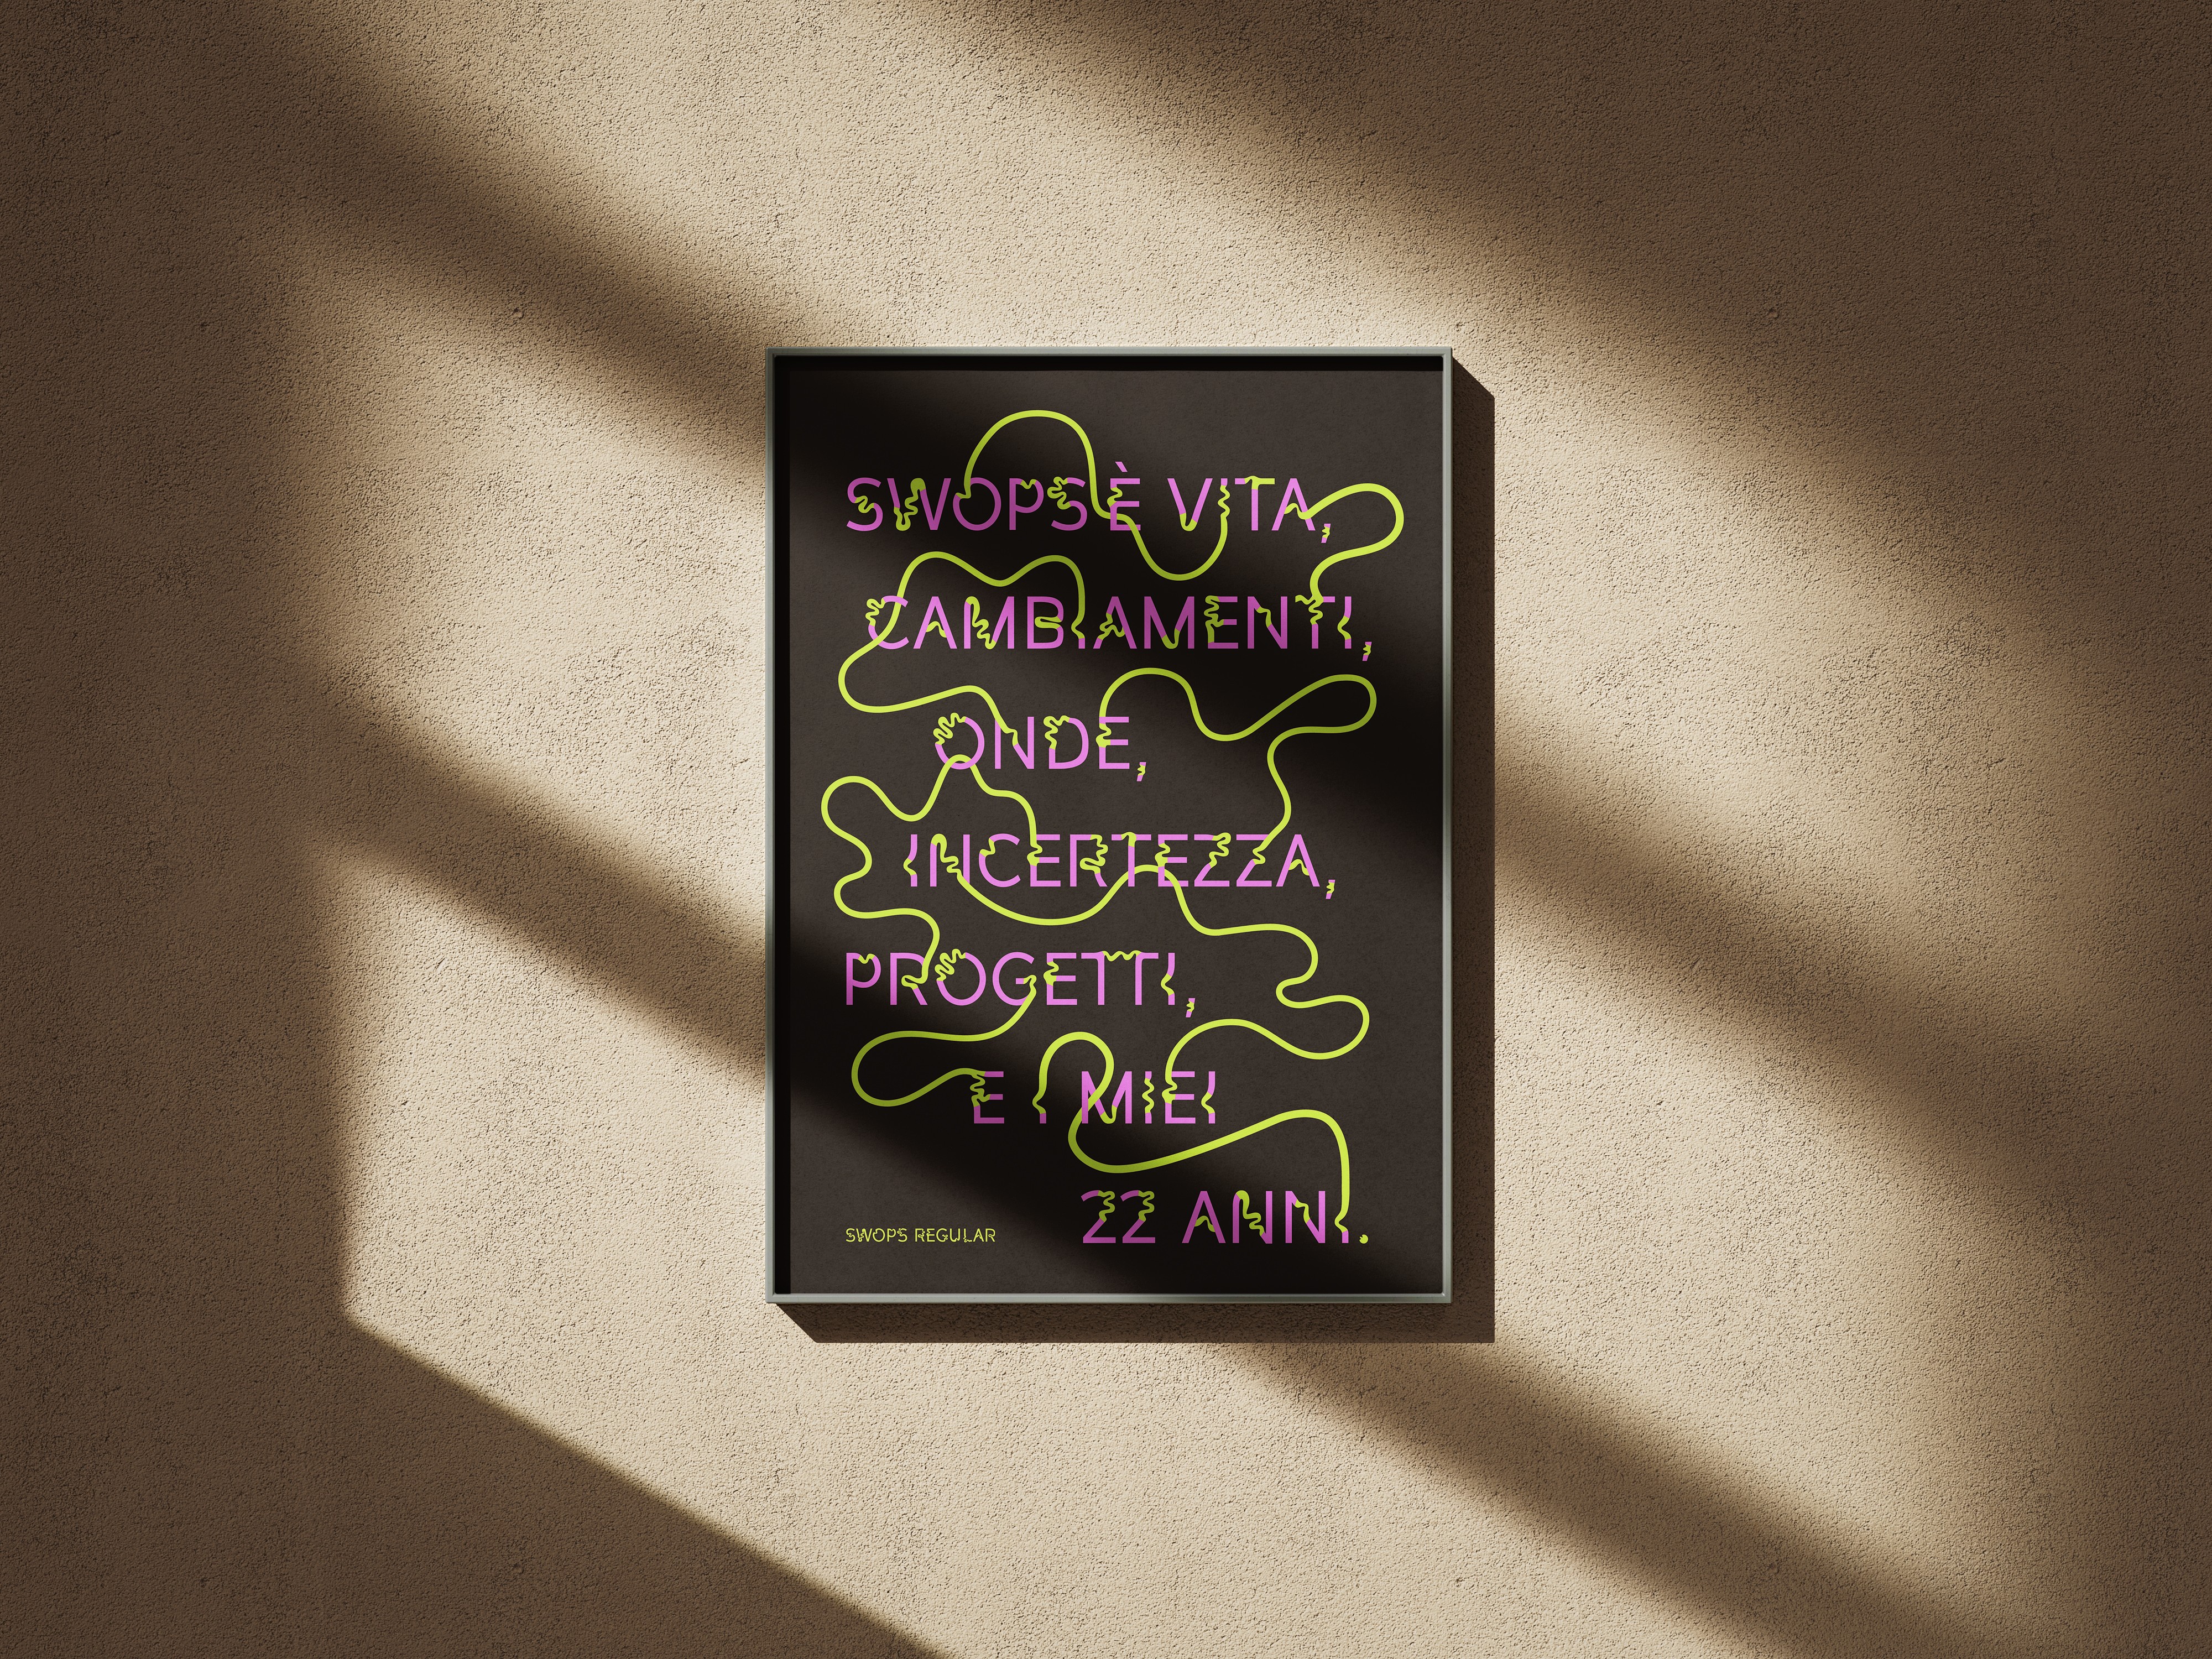 SWOPS È VITA,
CAMBIAMENTI,
ONDE,
INCERTEZZA,
PROGETTI,
E I MIEI
22 ANNI.
SWOPS REGULAR